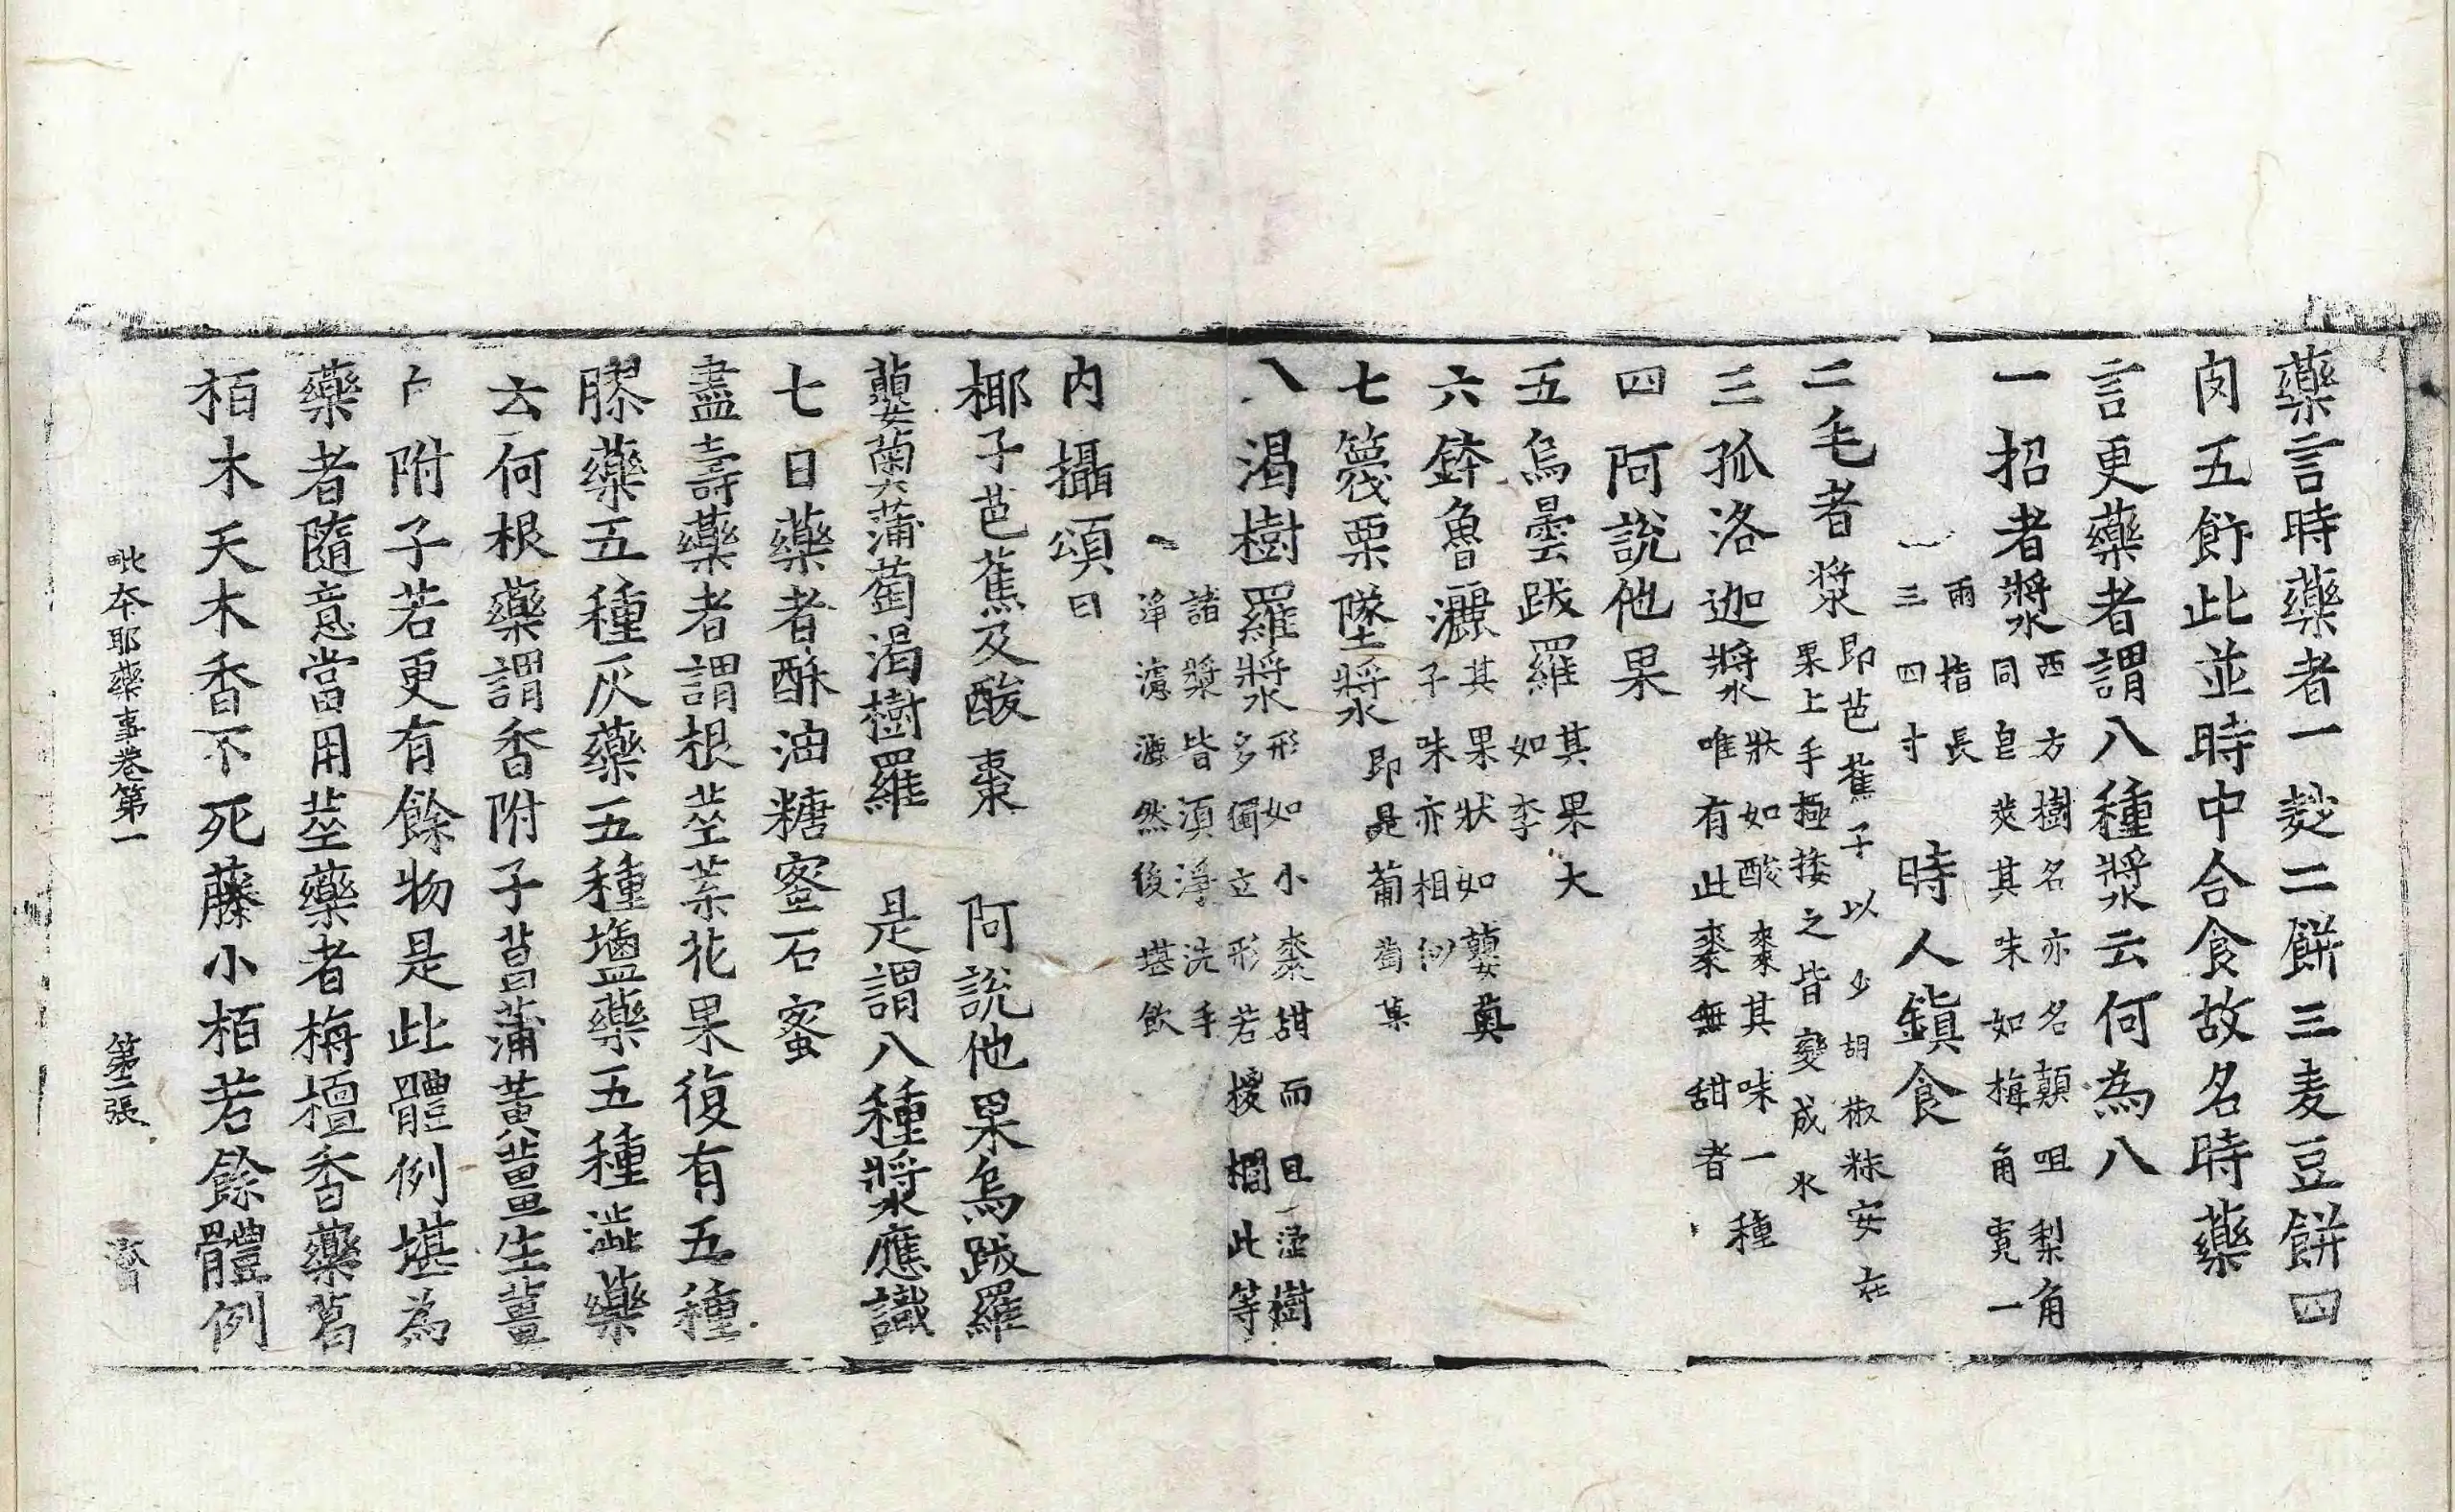 藥言時藥者一麨二餅三麦豆餅四
肉五飰此並時中合食故名時藥
言更藥者謂八種漿云何為八
一招者漿西方樹名亦名顛咀梨角
同皂莢其味如梅角寛一
兩指長
三四寸
時人鎮食
二毛者漿即芭蕉子以少胡椒粖安在
果上手極挼之皆變成水
三孤洛迦漿狀如酸棗其味一種
唯有此棗無甜者
四阿說他果
五烏曇跋羅其果大
如李
六鉢魯灑其果狀如蘡薁
子味亦相似
七篾栗墜漿即是葡萄菓
八渴樹羅漿形如小棗甜而且澁樹
多獨立形若椶櫚此等
諸漿皆須淨洗手
淨濾漉然後堪飲
内攝頌曰
椰子芭蕉及酸棗 阿說他果烏跋羅
蘡薁蒲萄渴樹羅 是謂八種漿應識
七日藥者酥油糖蜜石蜜
盡壽藥者謂根莖葉花果復有五種
膠藥五種灰藥五種鹽藥五種澁藥
云何根藥謂香附子菖蒲黃薑生薑
附子若更有餘物是此體例堪為
藥者隨意當用莖藥者栴檀香藥葛
栢木天木香不死藤小栢若餘體例
毗奈耶藥事卷第一 第二張